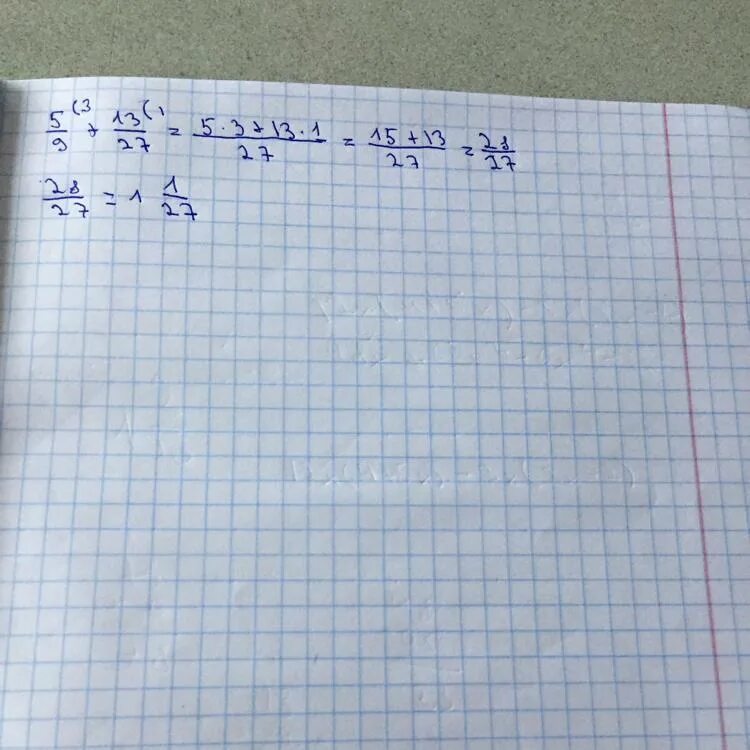 5/9 (3 + 13/27 (1 = 5·3+13·1/27 = 15+13/27 = 28/27
28/27 = 1 1/27